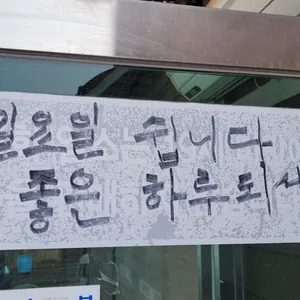 일요일 쉽니다
좋은 하루되시